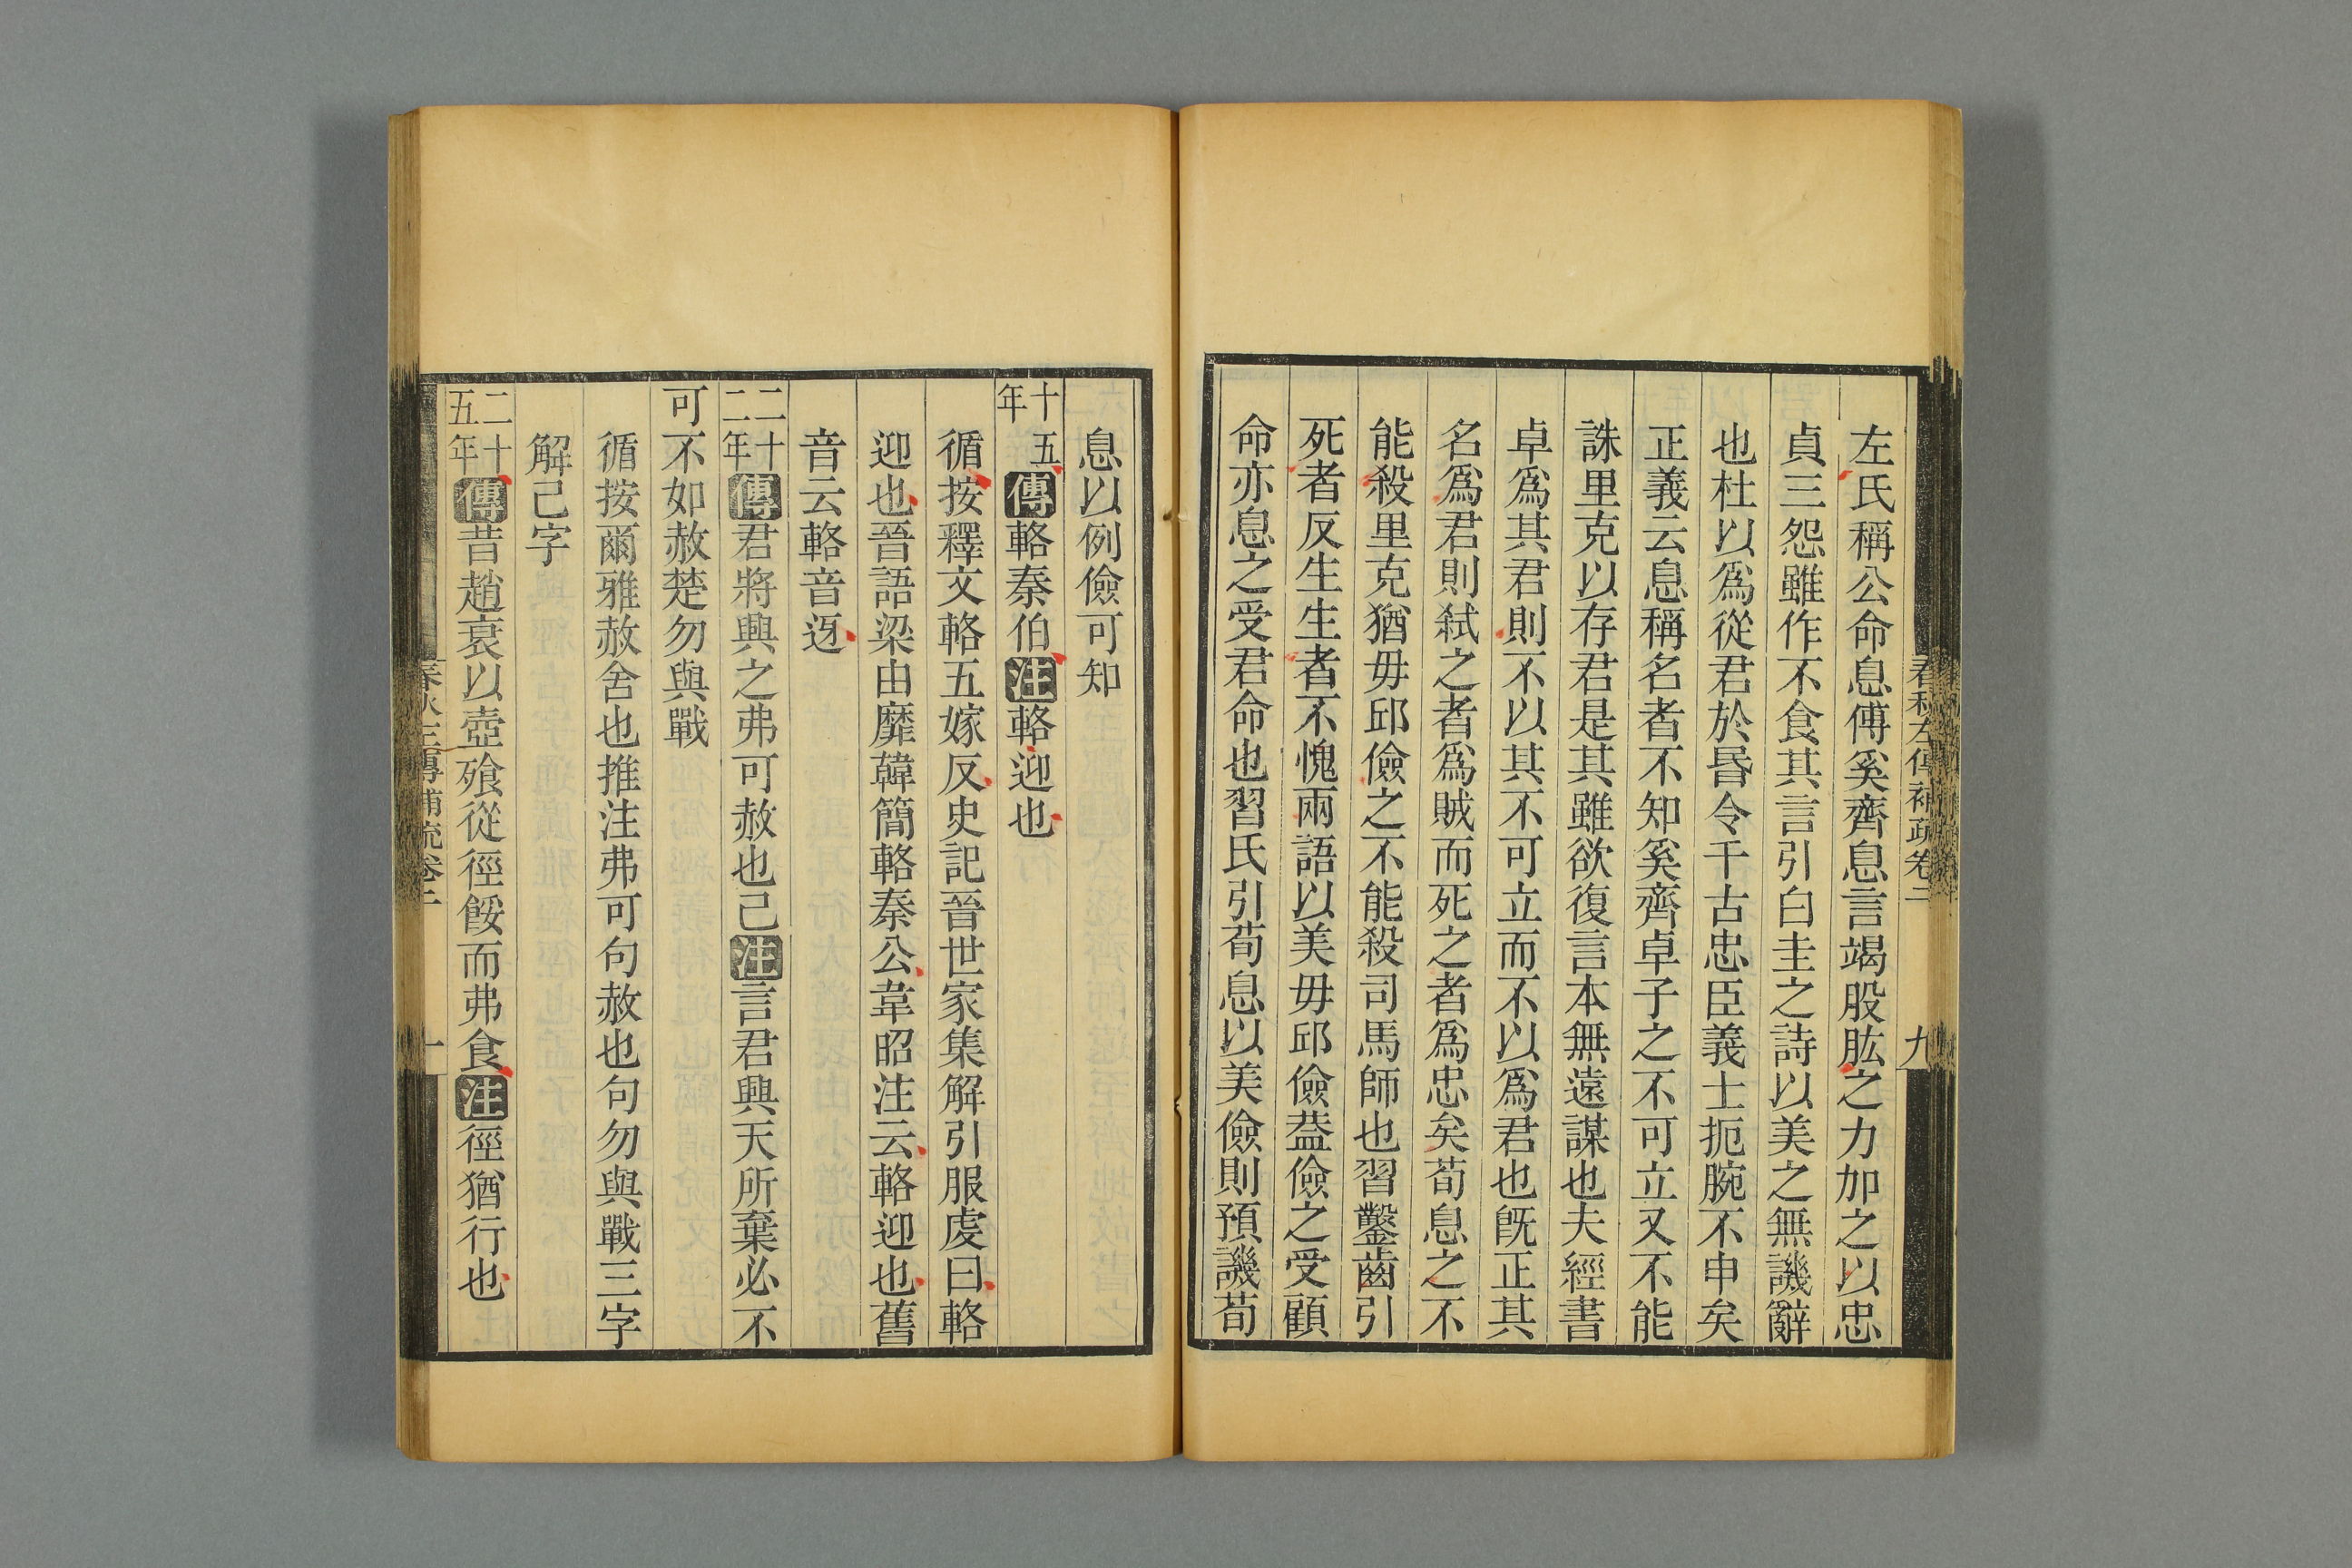 春秋左傳補疏卷二
九
左氏稱公命息傅奚齊息言竭股肱之力加之以忠
貞三怨雖作不食其言引白圭之詩以美之無譏辭
也杜以爲從君於昏令千古忠臣義士扼腕不申矣
正義云息稱名者不知奚齊卓子之不可立又不能
誅里克以存君是其雖欲復言本無遠謀也夫經書
卓爲其君則不以其不可立而不以爲君也旣正其
名爲君則弒之者爲賊而死之者爲忠矣荀息之不
能殺里克猶毋邱儉之不能殺司馬師也習鑿齒引
死者反生生者不愧兩語以美毋邱儉葢儉之受顧
命亦息之受君命也習氏引荀息以美儉則預譏荀
息以例儉可知
十五年傳輅秦伯注輅迎也
循按釋文輅五嫁反史記晉世家集解引服虔曰輅
迎也晉語梁由靡韓簡輅秦公韋昭注云輅迎也舊
音云輅音迓
二十二年傳君將興之弗可赦也已注言君興天所棄必不
可不如赦楚勿與戰
循按爾雅赦舍也推注弗可句赦也句勿與戰三字
解己字
二十五年傳昔趙衰以壺飱從徑餒而弗食注徑猶行也
春秋左傳補疏卷二